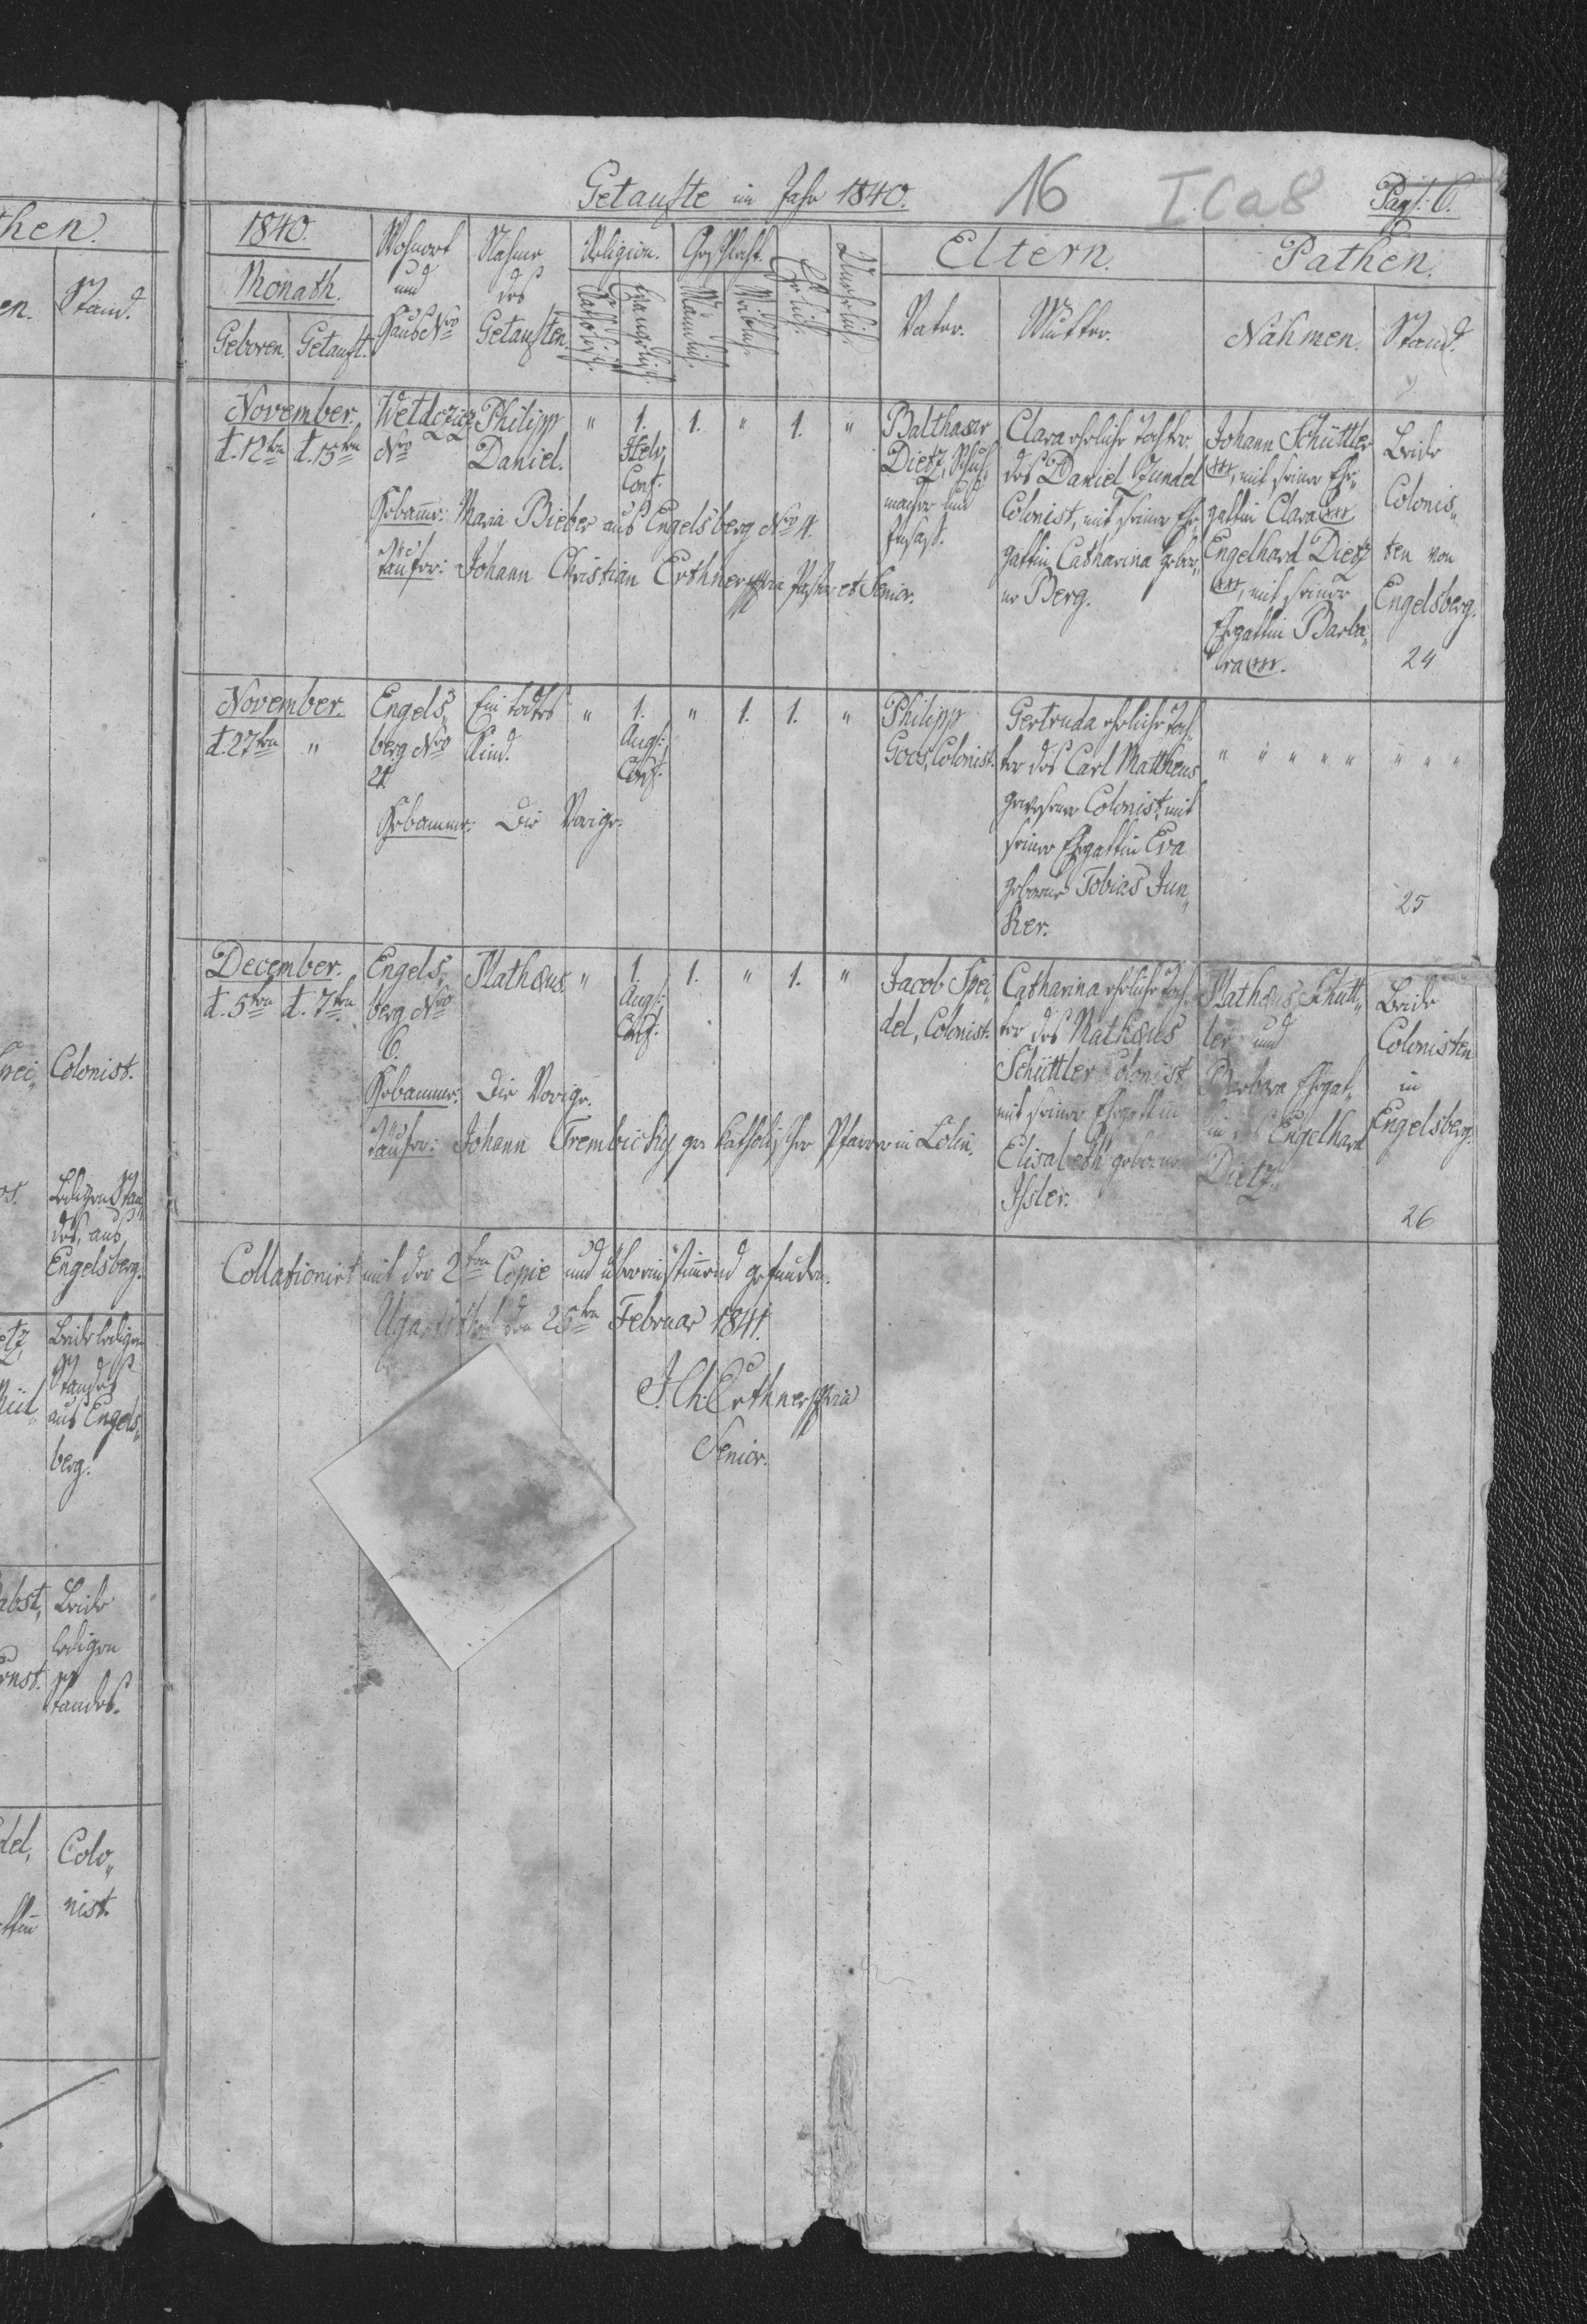 Getaufte im Jahr 1840.
16
I.C.a 8
Pag: 6.
1840.
Monath.
Geboren.
Getauft.
Wohnort
und
Haus Nro
Nahme
des
Getauften.
Religion.
Katholisch.
Evangelisch.
Geschlecht.
Männlich.
Weiblich.
Ehelich.
Unehelich.
Eltern.
Vater.
Mutter.
Pathen.
Nahmen.
Stand.
November.
d. 12ten d. 15ten
Weldczicz
Nro
Philipp
Daniel.
"
1.
Helv.
Conf.
1. " 1. "
Balthasar
Dietz, Schuh,,
macher und
Insaß.
Clara eheliche Tochter
des Daniel Zundel
Colonist, mit seiner Ehe,,
gattin Catharina gebor,,
ne Berg.
Johann Schüttler
mit seiner Ehe,,
gattin Clara
Engelhard Dietz
mit seiner
Ehegattin Barba,,
ra
Beide
Colonis,,
ten von
Engelsberg.
24
Hebamme: Maria Bieber aus Engelsberg Nro 4.
Täufer: Johann Christian Erthner mpria Pastor et Senior.
November.
d. 27ten "
Engels,,
berg Nro
24
Ein todtes
Kind.
"
1.
Augs:
Conf.
" 1. 1. "
Philipp
Goos, Colonist.
Gertruda eheliche Toch,,
ter des Carl Mattheus
gewesener Colonist, mit
seiner Ehegattin Eva
geborne Tobias Jun,,
ker.
" " " " " " " "
25
Hebamme: Die Vorige.
December.
d. 5ten d. 7ten
Engels,,
berg Nro
6.
Mathæus
"
1.
Augs:
Conf.
1. " 1. "
Jacob Spei,,
del, Colonist.
Catharina eheliche Toch,,
ter des Mathæus
Schüttler Colonist
mit seiner Ehegattin
Elisabeth geborne
Ißler.
Mathæus Schütt,,
ler und
Barbara Ehegat,,
tin des Engelhard
Dietz.
Beide
Colonisten
in
Engelsberg.
26
Hebamme: Die Vorige.
Täufer: Johann Trembicky gr. katholischer Pfarrer in Lolin.
Collationirt mit der 2ten Copie und übereinstimmend gefunden.
Ugartsthal den 26ten Februar 1841.
J. Ch. Erthner mpria
Senior.
hen.
en.
Stand.
Spei,,
Colonist.
os.
Ledigen Stan,,
des, aus
Engelsberg.
etz
Beide ledigen
Standes
aus Engels,,
berg.
abst,
Beide
ledigen
Standes.
rnst.
del,
Colo,,
nist.